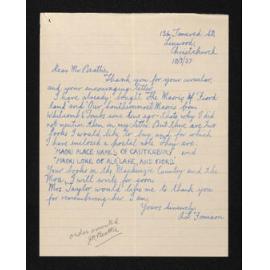 136 Tancred St,
Linwood,
Christchurch
10/7/57
Dear Mr Beattie,
Thank you for your circular,
and your encouraging letter.
I have already bought The Maoris of Fiord
land and Our Southernmost Maoris from
Whitcombe & Tombs some time ago. Thats why I did
not mention them in my letter. But there are two
books I would like to buy and for which
I have enclosed a postal note. They are
"MAORI PLACE NAMES OF CANTERBURY" and
"MAORI LORE OF LAKE, ALP, AND FIORD"
Your books on the Mackenzie Country and the
Moa, I will write for soon.
Mrs Taylor would like me to thank you
for remembering her. I am,
Yours sincerely,